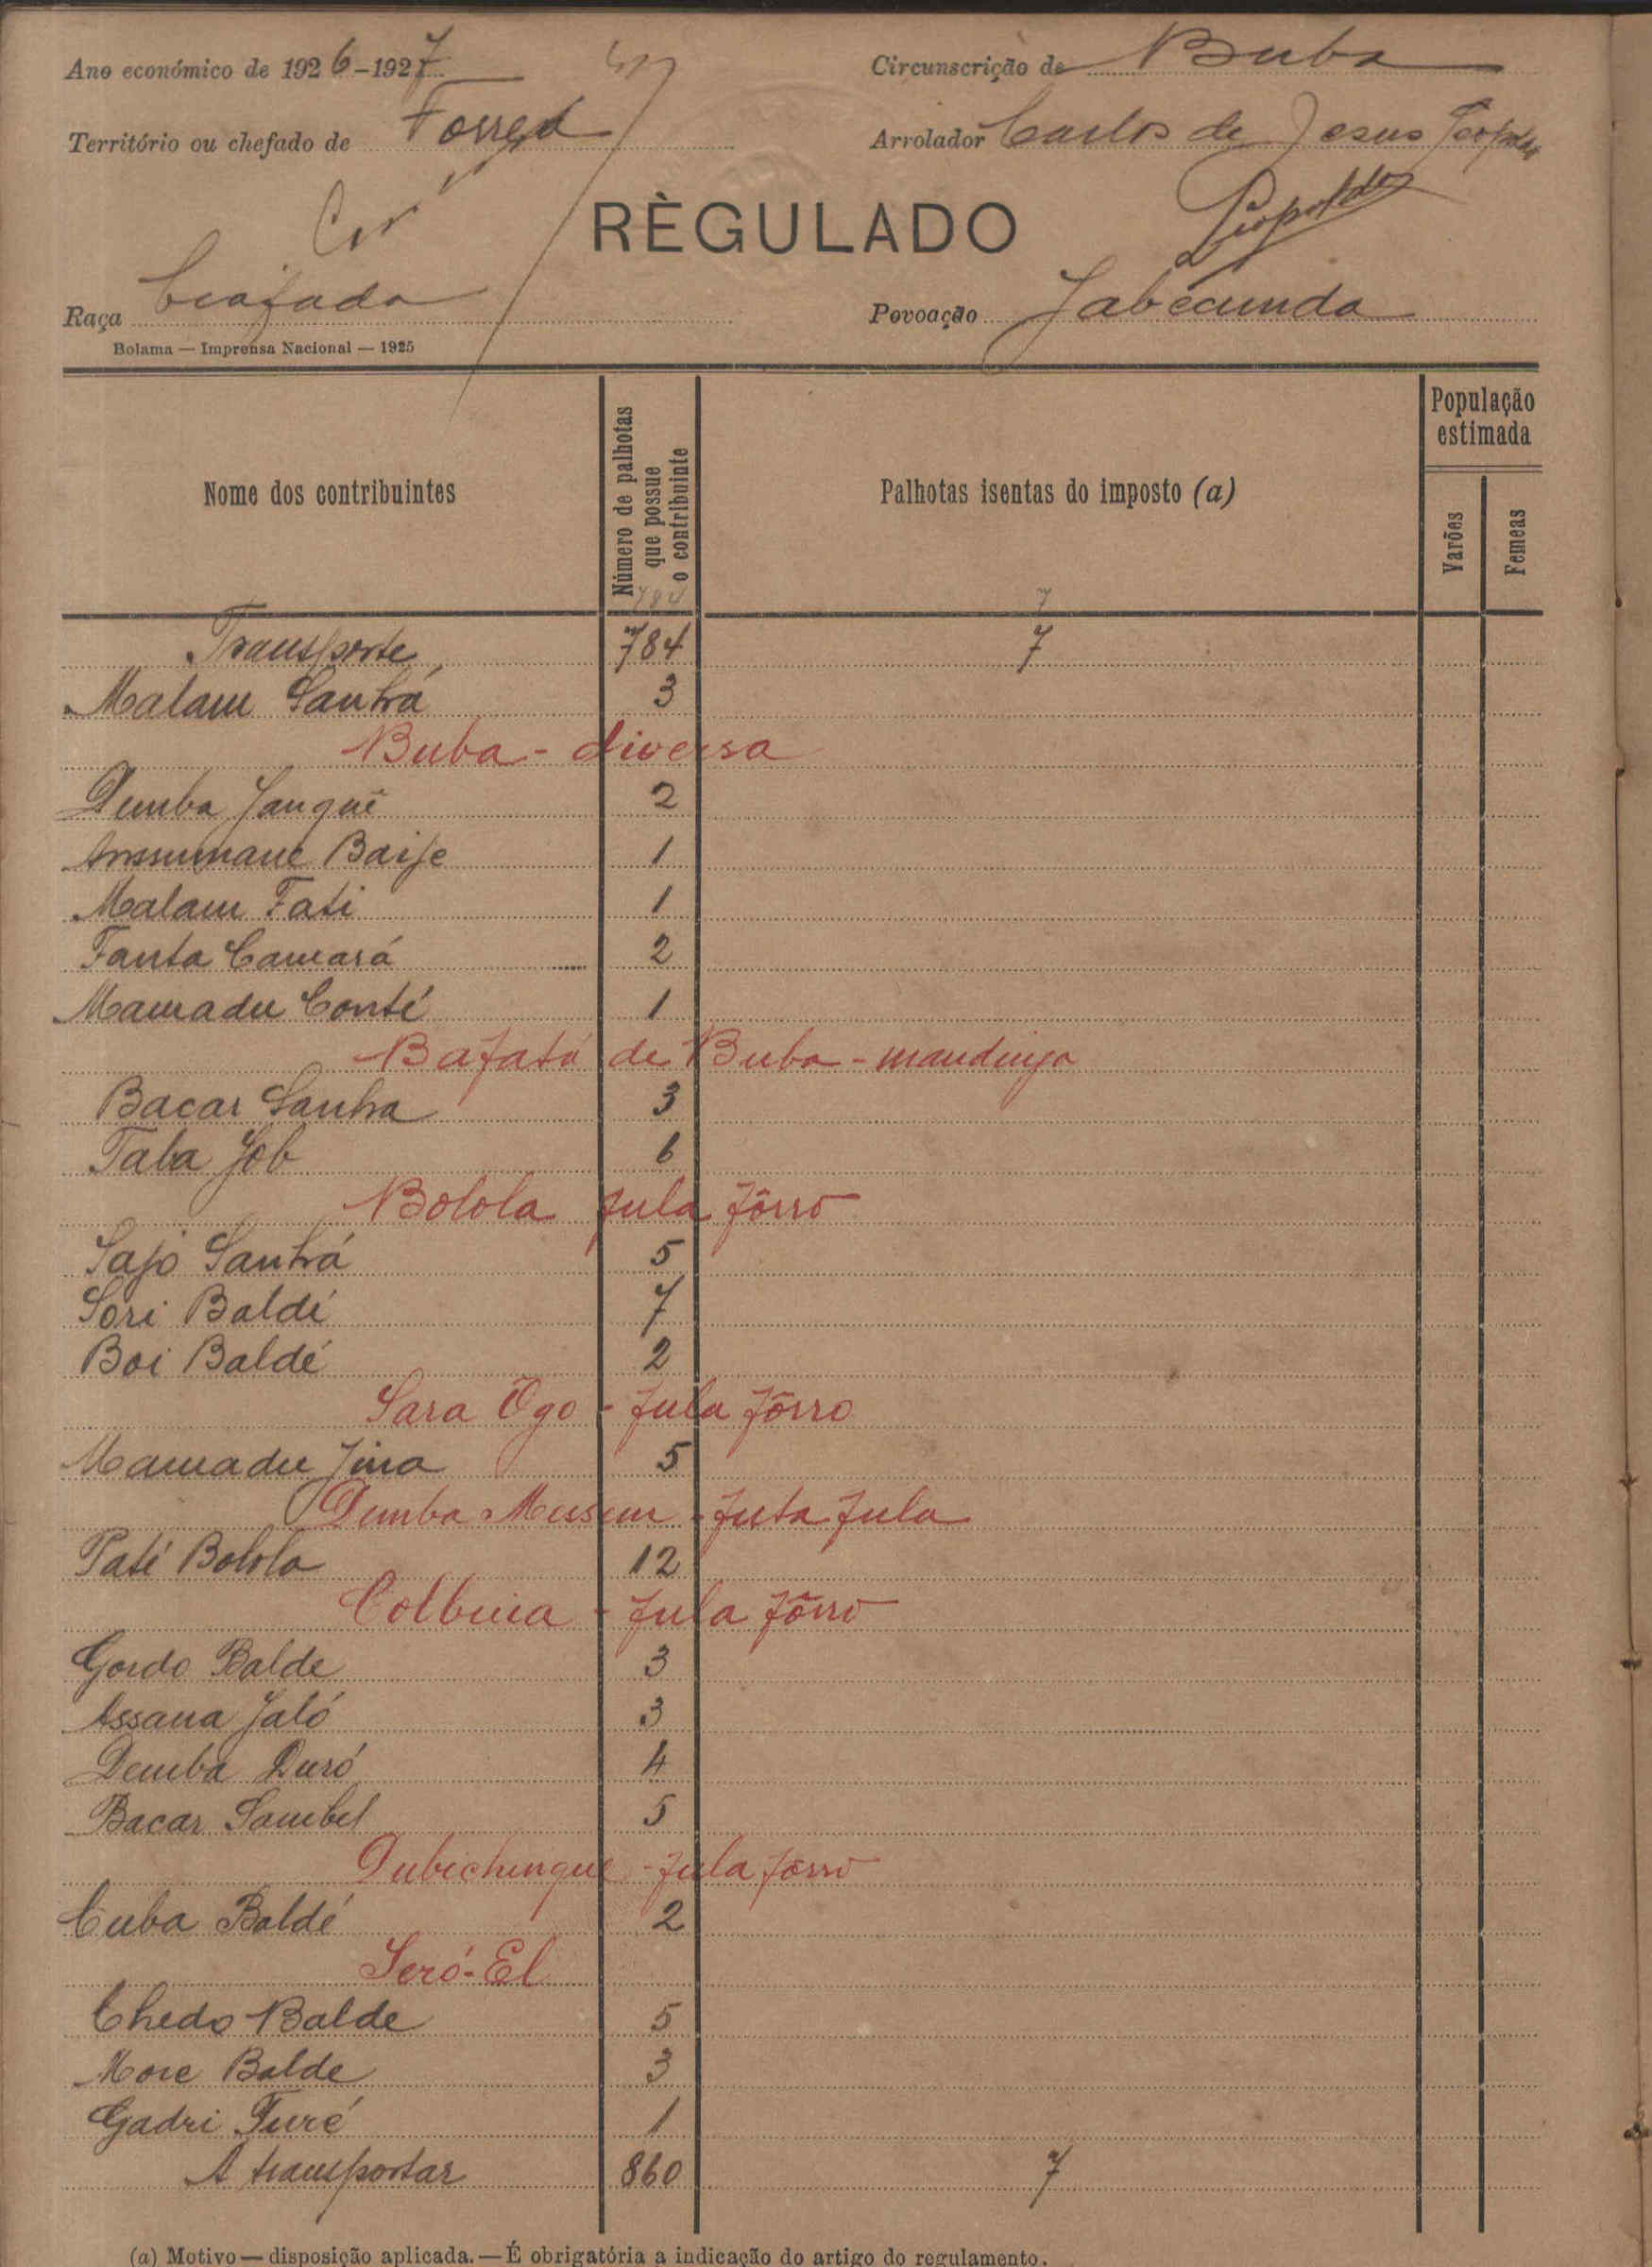 Ano económico de 1926-1927
Circunscrição de Buba
Território ou chefado de Forreá
Arrolador Carlos de Jesus Leopoldo
Leopoldo
RÈGULADO
Raça Beafada
Povoação Jabécunda
Bolama — Imprensa Nacional — 1925
Nome dos contribuintes
Número de palhotas que possue o contribuinte
Palhotas isentas do imposto (a)
População estimada
Varões
Femeas
784 7
Transporte 784 7
Malam Sanhá 3
Buba - diversa
Demba Janqué 2
Anssumane Baije 1
Malam Fati 1
Fanta Camará 2
Mamadu Conté 1
Bafatá de Buba - mandinga
Bacar Sanha 3
Taba Job 6
Bolola fula fôrro
Sajo Sanhá 5
Sori Baldé 7
Boi Baldé 2
Sara Ogo - fula fôrro
Mamadu Jina 5
Demba Mussum - futa fula
Paté Bolola 12
Colbuia - fula fôrro
Gordo Balde 3
Assana Jaló 3
Demba Duró 4
Bacar Sambel 5
Dubichenque - fula fôrro
Cuba Baldé 2
Seró-El
Chedo Balde 5
More Balde 3
Gadri Turé 1
A transportar 860 7
(a) Motivo — disposição aplicada. — É obrigatória a indicação do artigo do regulamento.